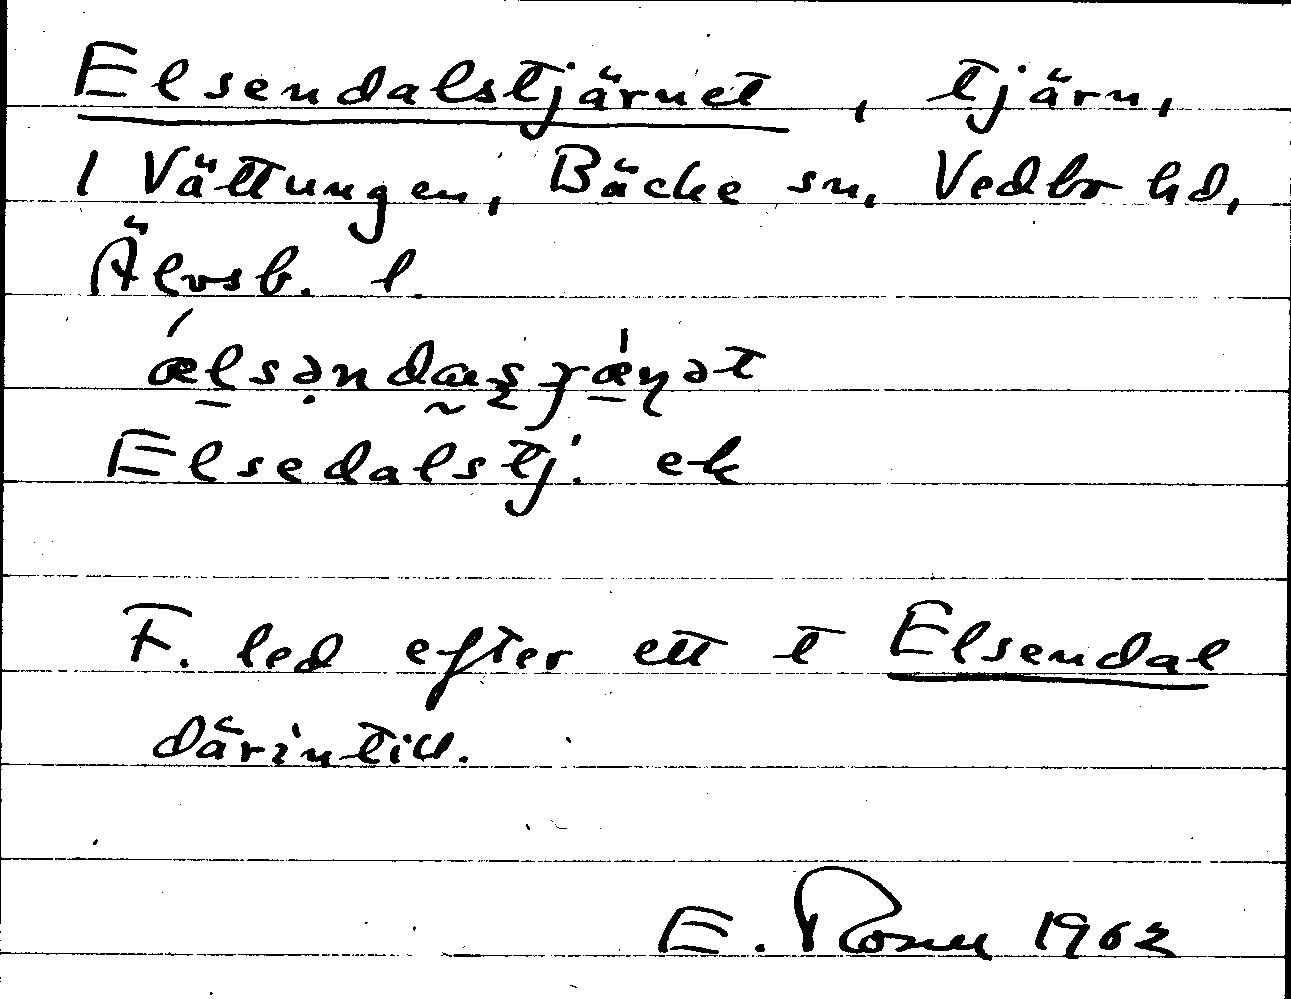 Elsendalstjärnet, tjärn,
1 Vättungen, Bäcke sn, Vedbo hd,
Älvsb. l.
Elsedalstj. ek
F. led efter ett t Elsendal
därintill.
E. Rosell 1962